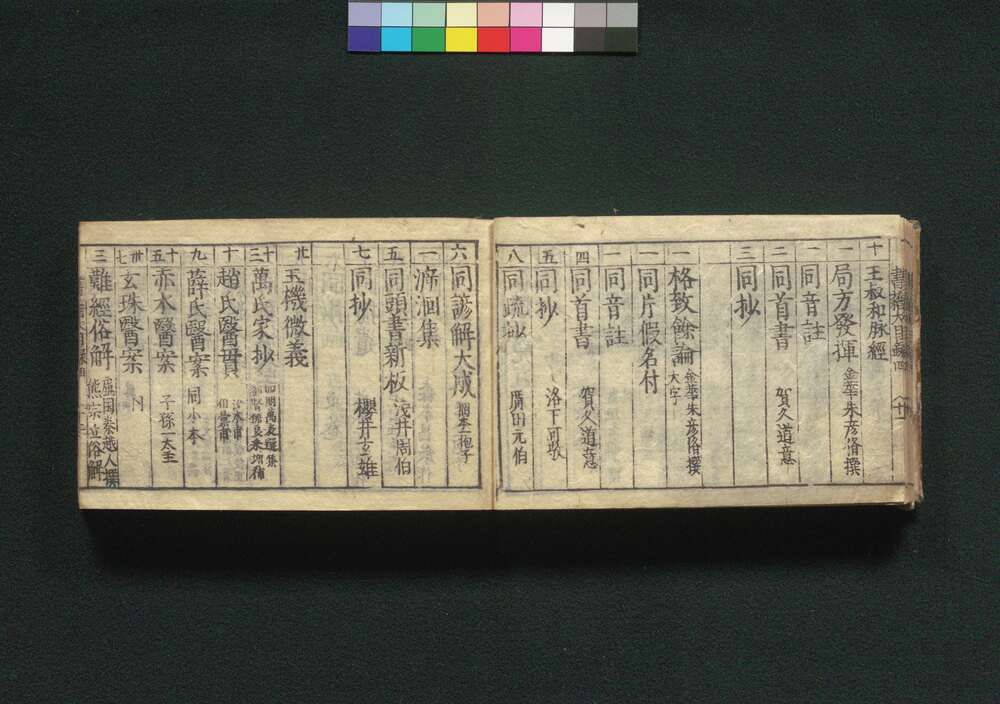 十 王叔和脉經
一 局方發揮 金華朱彦脩撰
一 同音註
二 同首書 賀久道意
三 同抄
一 格致餘論 大字 金華朱彦脩撰
一 同片假名付
一 同音註
四 同首書 賀久道意
五 同抄 洛下可敬
八 同疏抄 廣田元伯
六 同諺解大成
一 泝洄集
五 同頭書新板 浅井周伯
七 同抄 櫻井立雄
廿 玉機微義
十三 萬氏家抄
十 趙氏醫貫
九 薛氏醫案 同小本
十五 赤水醫案 子孫一大生
卅七 玄珠醫案
三 難經俗解 盧国秦越人撰 熊宗立俗解